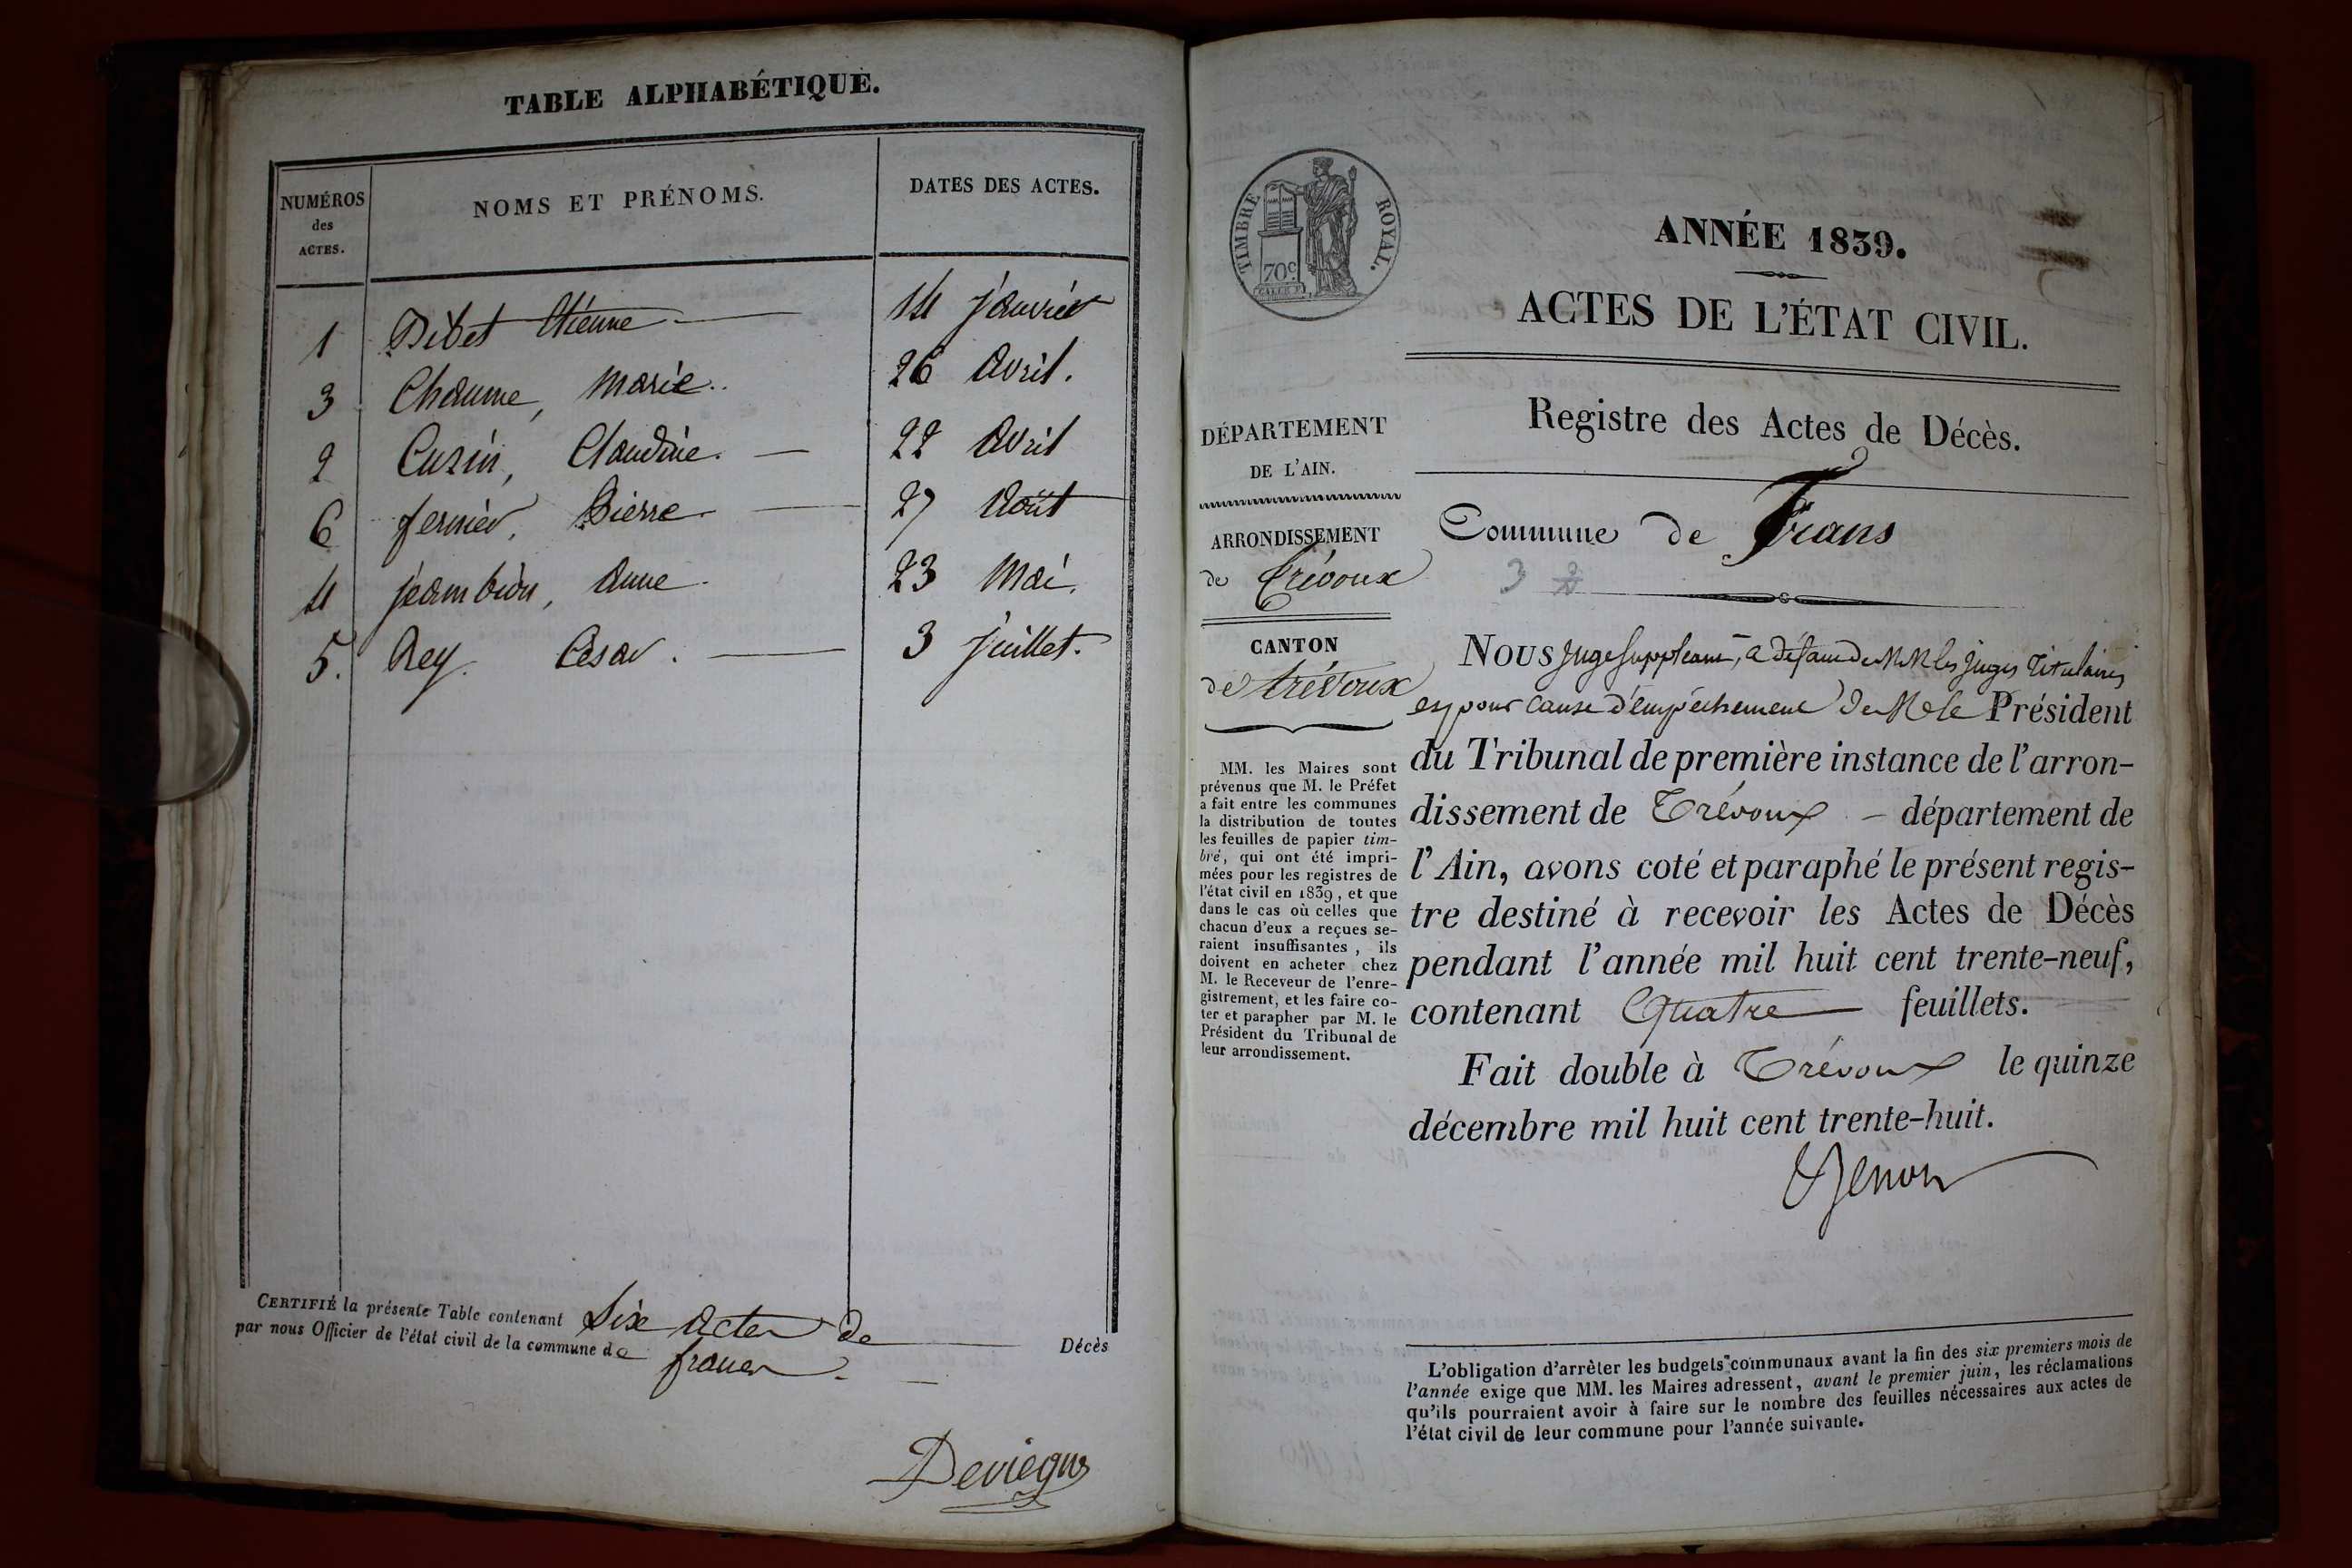 TABLE ALPHABÉTIQUE.
NUMÉROS des ACTES.
NOMS ET PRÉNOMS.
DATES DES ACTES.
1 Étienne 14 janvier
3 Chaume, Marie.. 26 Avril.
2 Cuzin, Claudine. 22 Avril
6 fernier, Pierre 27 Août
4 jeambion, Anne 23 Mai.
5. Rey. César. 3 juillet.
CERTIFIÉ la présente Table contenant Six Actes de Décès
par nous Officier de l'état civil de la commune de
TIMBRE ROYAL.
70c.
ANNÉE 1839.
ACTES DE L'ÉTAT CIVIL.
Registre des Actes de Décès.
DÉPARTEMENT
DE L'AIN.
ARRONDISSEMENT
de Trévoux
CANTON
de trévoux
MM. les Maires sont
prévenus que M. le Préfet
a fait entre les communes
la distribution de toutes
les feuilles de papier tim-
bré, qui ont été impri-
mées pour les registres de
l'état civil en 1839, et que
dans le cas où celles que
chacun d'eux a reçues se-
raient insuffisantes, ils
doivent en acheter chez
M. le Receveur de l'enre-
gistrement, et les faire co-
ter et parapher par M. le
Président du Tribunal de
leur arrondissement.
Commune de Frans
3
NOUS Juge suppléant, a défaut de MM les Juges Titulaires
et pour cause d'empêchement de M le Président
du Tribunal de première instance de l'arron-
dissement de Trévoux – département de
l'Ain, avons coté et paraphé le présent regis-
tre destiné à recevoir les Actes de Décès
pendant l'année mil huit cent trente-neuf,
contenant Quatre feuillets.
Fait double à Trévoux le quinze
décembre mil huit cent trente-huit.
L'obligation d'arrêter les budgets communaux avant la fin des six premiers mois de
l'année exige que MM. les Maires adressent, avant le premier juin, les réclamations
qu'ils pourraient avoir à faire sur le nombre des feuilles nécessaires aux actes de
l'état civil de leur commune pour l'année suivante.